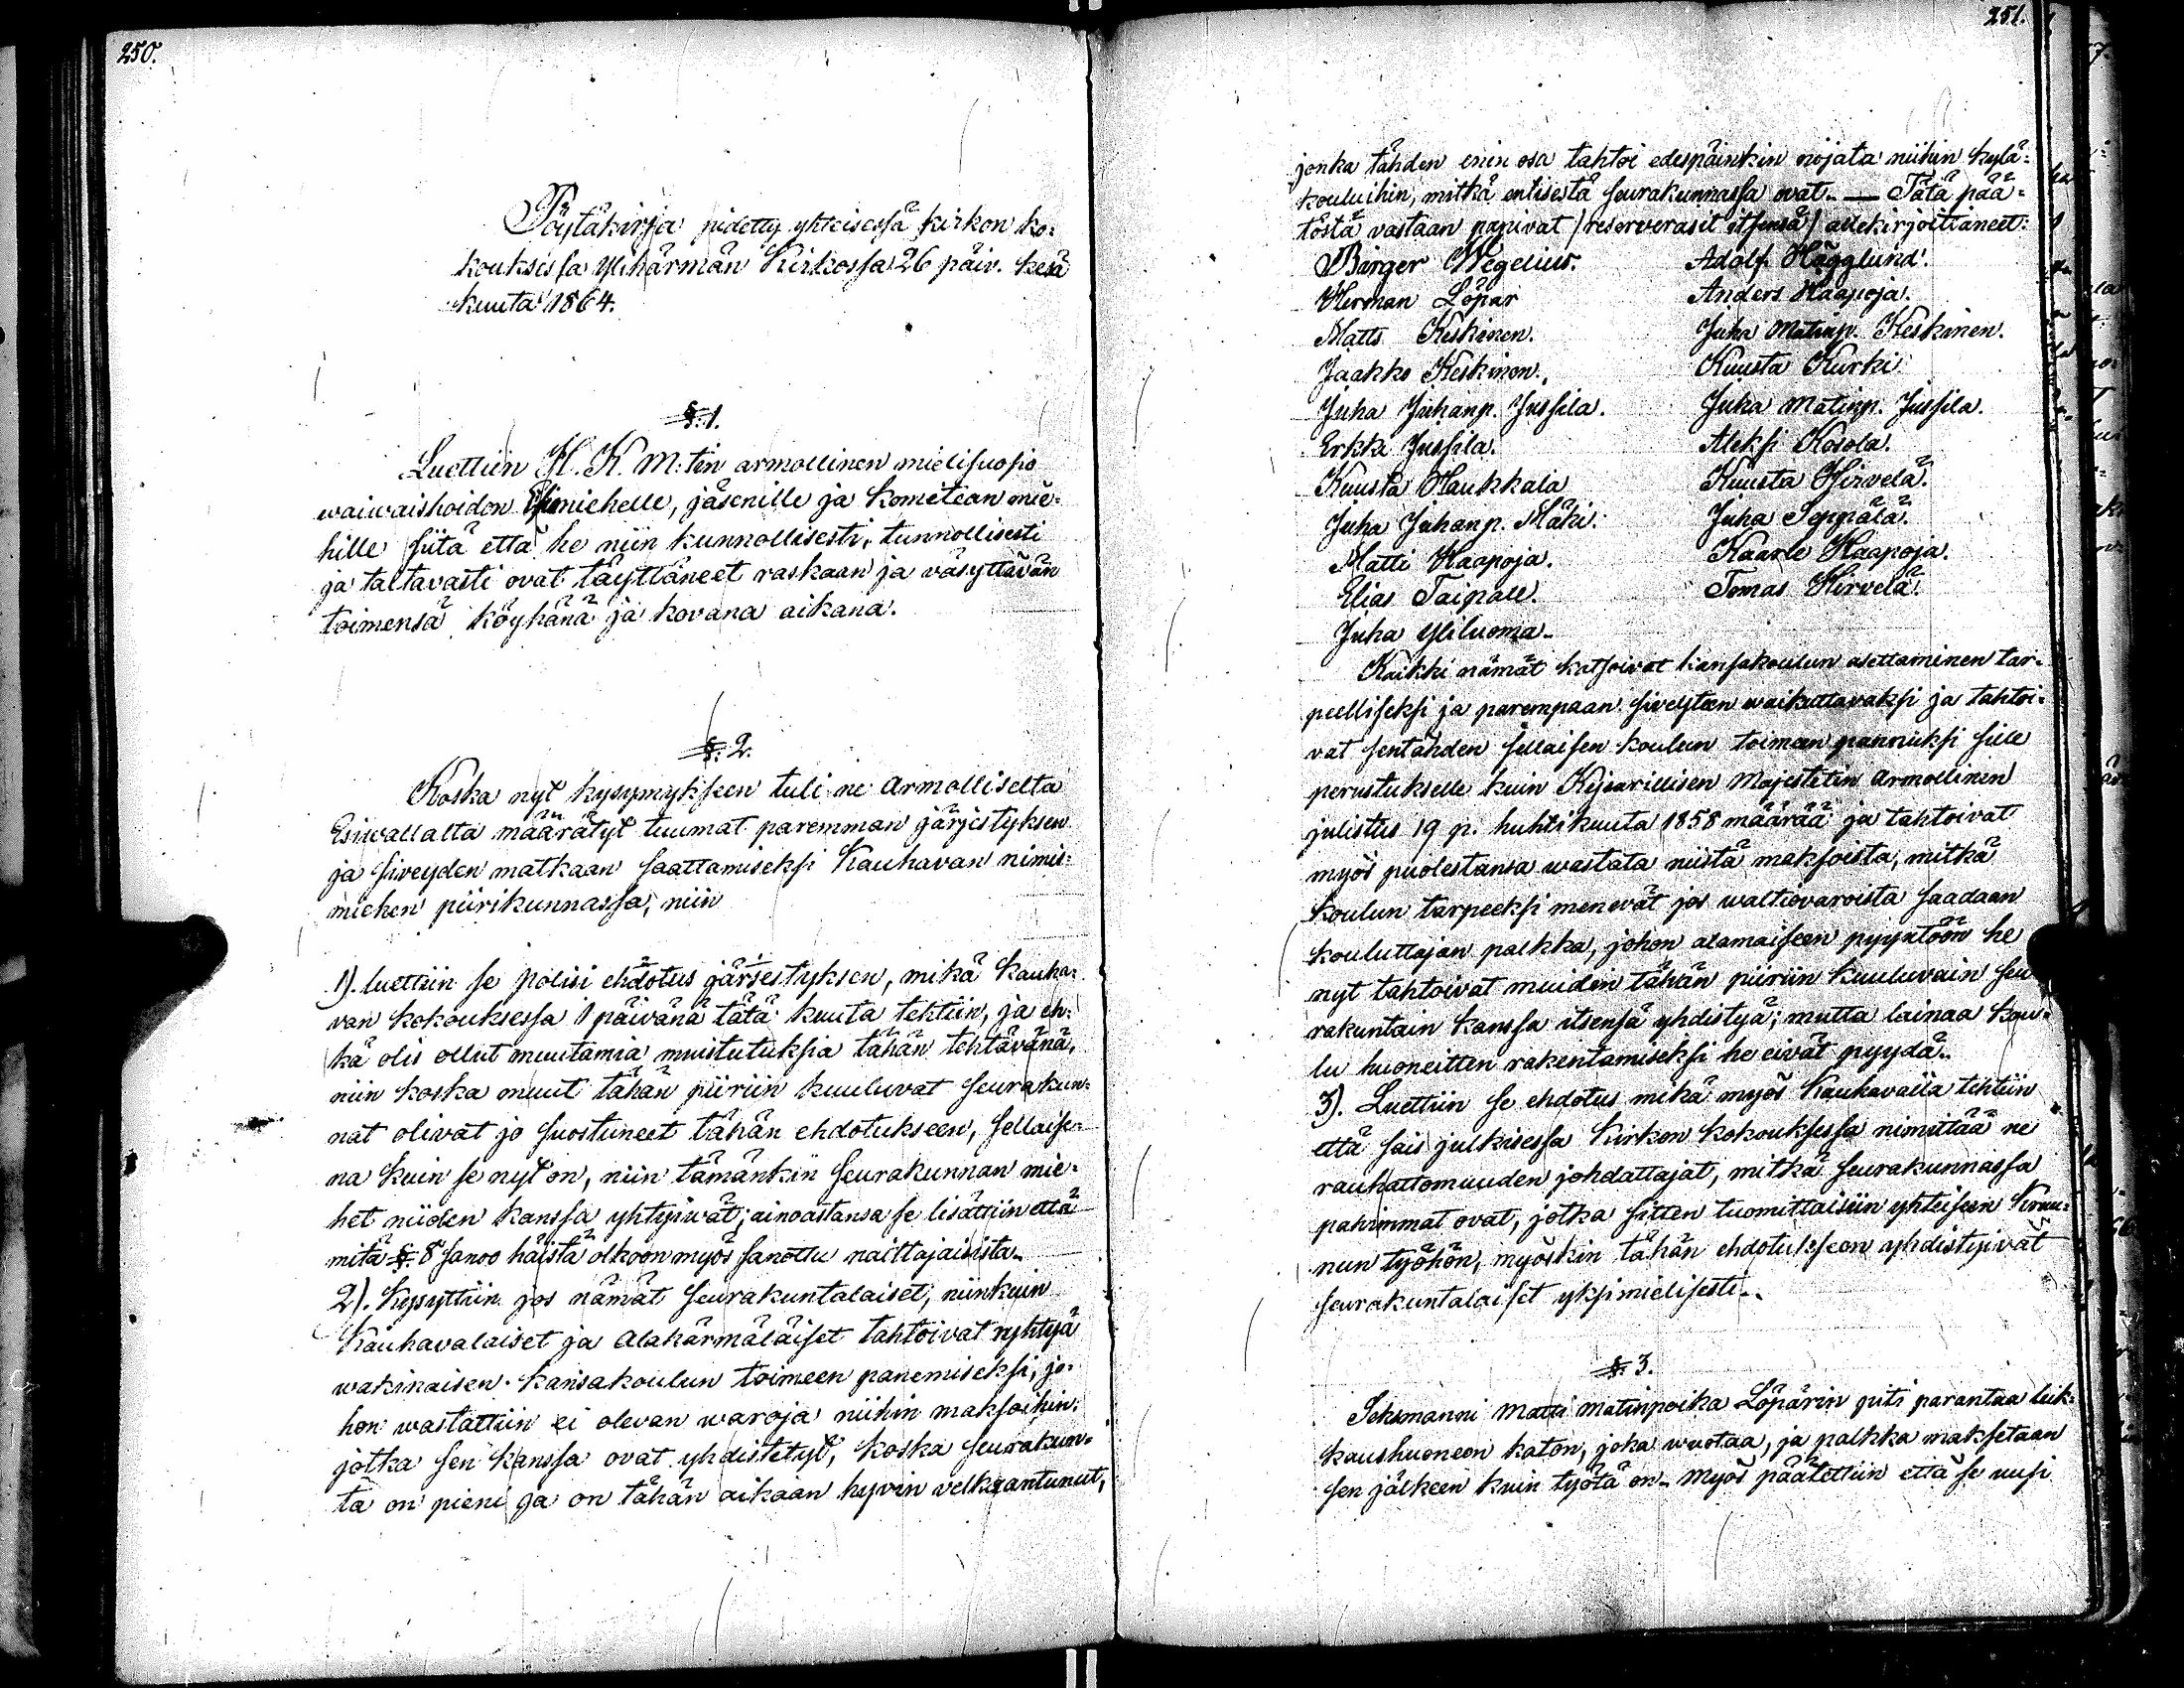 250.
Pöytäkirja pidetty yhteisessä kirkon ko-
kouksissa Ylihärmän Kirkossa 26 päiv. kesä
kuuta 1864.
§. 1.
Luettiin H. K. M:tin armollinen mielisuosio
waiwaishoidon Esimiehelle, jäsenille ja Komitean mie-
hille siitä että he niin kunnollisesti, tunnollisesti
ja taitavasti ovat täyttäneet raskaan ja väsyttävän
toimensa köyhänä ja kovana aikana.
§. 2.
Koska nyt kysymykseen tuli ne Armolliselta
Esiwallalta määrätyt tuumat paremman järjestyksen
ja siveyden matkaan saattamiseksi Kauhavan nimis-
miehen piirikunnassa, niin
1). luettiin se polisi ehdotus järjestyksen, mikä Kauha-
van kokouksessa 1 päivänä tätä kuuta tehtiin, ja eh-
kä olis ollut muutamia muistutuksia tähän tehtävänä,
niin koska muut tähän piiriin kuuluvat seurakun-
nat olivat jo suostuneet tähän ehdotukseen, sellaise-
na kuin se nyt on, niin tämänkin seurakunnan mie-
het niiden kanssa yhtyivät; ainoastansa se lisättiin että
mitä §. 8 sanoo häistä olkoon myös sanottu naittajaisista.
2). Kysyttiin jos nämät seurakuntalaiset, niinkuin
Kauhavalaiset ja Alahärmäläiset tahtoivat ryhtyä
wakinaisen kansakoulun toimeen panemiseksi, jo-
hon wastattiin ei olevan waroja niihin maksoihin,
jotka sen kanssa ovat yhdistetyt, koska seurakun-
ta on pieni ja on tähän aikaan hyvin velkaantunut,
251.
jonka tähden enin osa tahtoi edespäinkin nojata niihin kylä-
kouluihin, mitkä entisestä seurakunnassa ovat. — Tätä pää-
töstä vastaan panivat /reserverasit itsensä/ allekirjoittaneet:
Birger Wegelius. Adolf Hägglund.
Herman Löpar Anders Haapoja.
Matts Keskinen. Juha Matinp. Keskinen.
Jaakko Keskinen. Kuusta Kurki
Juha Juhanp. Jussila. Juha Matinp. Jussila.
Erkki Jussila. Aleksi Kosola.
Kuusta Haukkala Kuusta Hirvelä.
Juha Juhanp. Mäki. Juha Seppälä.
Matti Haapoja. Kaarle Haapoja.
Elias Taipale. Tomas Hirvelä.
Juha Yliluoma.
Kaikki nämät katsoivat kansakoulun asettaminen tar-
peelliseksi ja parempaan siveyteen waikuttavaksi ja tahtoi-
vat sentähden sellaisen koulun toimeen pannuksi sille
perustukselle kuin Keisarillisen Majestetin Armollinen
julistus 19 p. huhtikuuta 1858 määrää ja tahtoivat
myös puolestansa wastata niistä maksoista, mitkä
koulun tarpeeksi menevät jos waltiovaroista saadaan
kouluttajan palkka, johon alamaiseen pyyntöön he
nyt tahtoivat muiden tähän piiriin kuuluvain seu
rakuntain kanssa itsensä yhdistyä; mutta lainaa kou-
lu huoneitten rakentamiseksi he eivät pyydä.
3). Luettiin se ehdotus mikä myös Kauhavalla tehtiin
että sais julkisessa Kirkon kokouksessa nimittää ne
rauhattomuuden johdattajat, mitkä seurakunnassa
pahimmat ovat, jotka sitten tuomittaisiin yhteiseen Kruu-
nun työhön, myöskin tähän ehdotukseen yhdistyivät
seurakuntalaiset yksimielisesti.
§. 3.
Seksmanni Matti Matinpoika Löpärin piti parantaa leik-
kaushuoneen katon, joka wuotaa, ja palkka maksetaan
sen jälkeen kuin työtä on. Myös päätettiin että se uusi